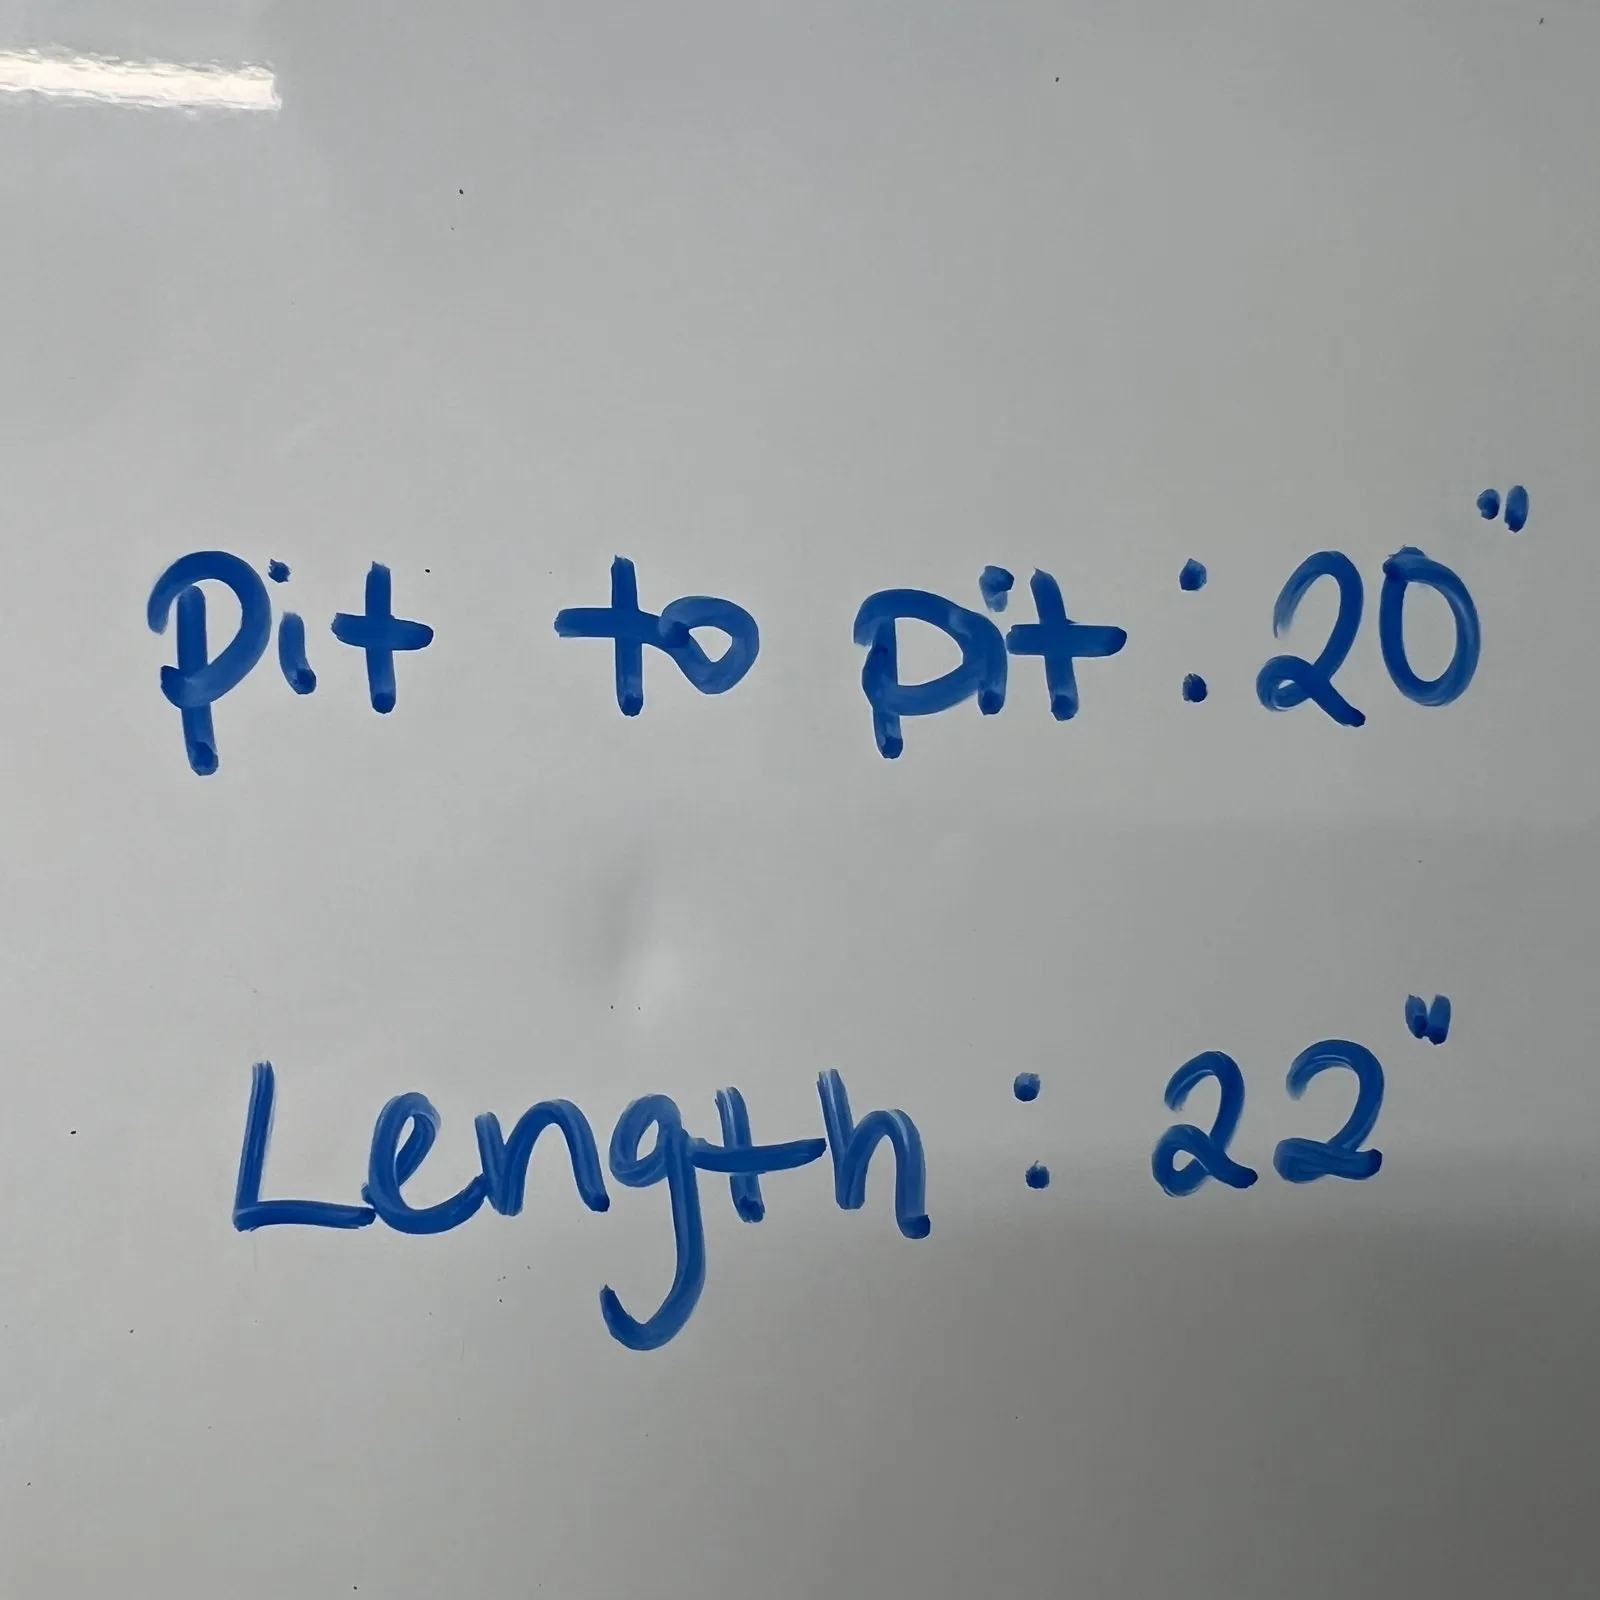 Pit to pit : 20"
Length : 22"